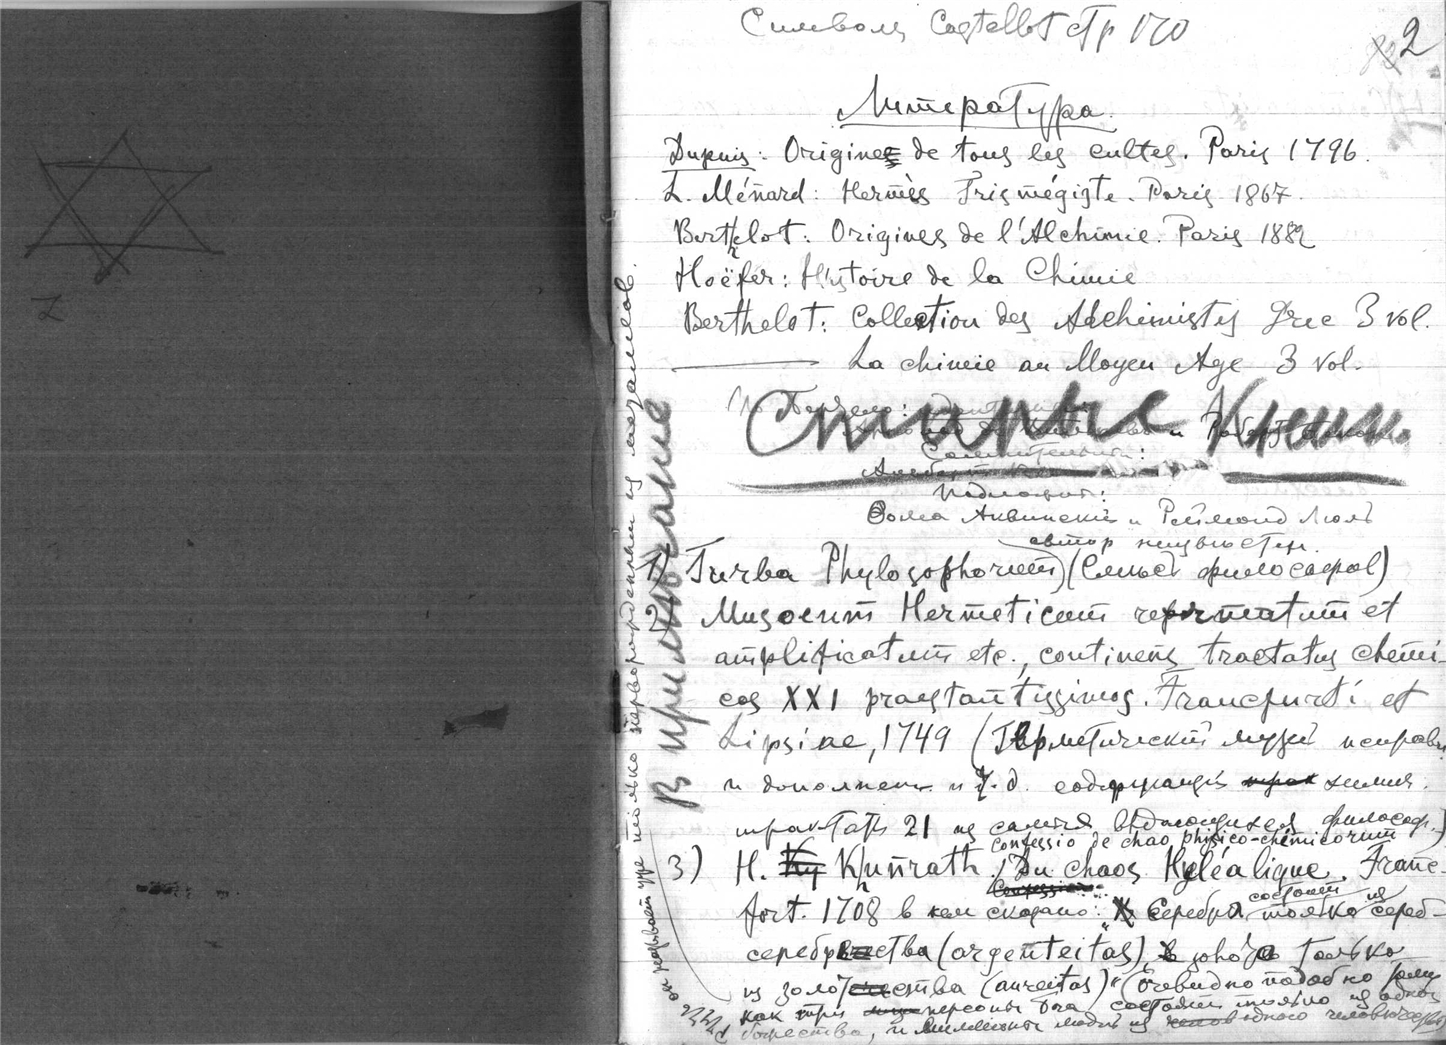 Символы Castellot стр 170
2
Литература.
Dupuis: Origines de tous les cultes. Paris 1796.
L. Ménard: Hermès Trismégiste. Paris 1867.
Berthelot: Origines de l'Alchimie. Paris 1882
Hoëfer: Histoire de la Chimie
Berthelot: Collection des Alchimistes Grec 3 vol.
La chimie au Moyen Age 3 vol.
Старые Книги
Сомнительны:
Подложны:
Фома Аквинский и Реймонд Люль
автор неизвестен.
1) Turba Phylosophorum) (Синъет философов)
2) Musoeum Hermeticum reformatum et
amplificatum etc., continens tractatus chemi-
cos XXI praestantissimos. Francfurti et
Lipsiae, 1749 (Герметический музей исправл
и дополнен и т. д. содержащий химич.
трактаты 21 из самых выдающихся философ.)
confessio de chao physico-chemicorum
3) H. Khunrath. Du chaos Hyléalique. Franc-
fort. 1708 в нем сказано: " Серебро состоит только из сереб-
серебрества (argenteitas), золото только
из золотества (aureitas)" (Очевидно подобно тому
как три персоны бога состоят только из одного
божества, и миллионы людей из одного человечества
В примечание
уже только перворожденным из мозамов.